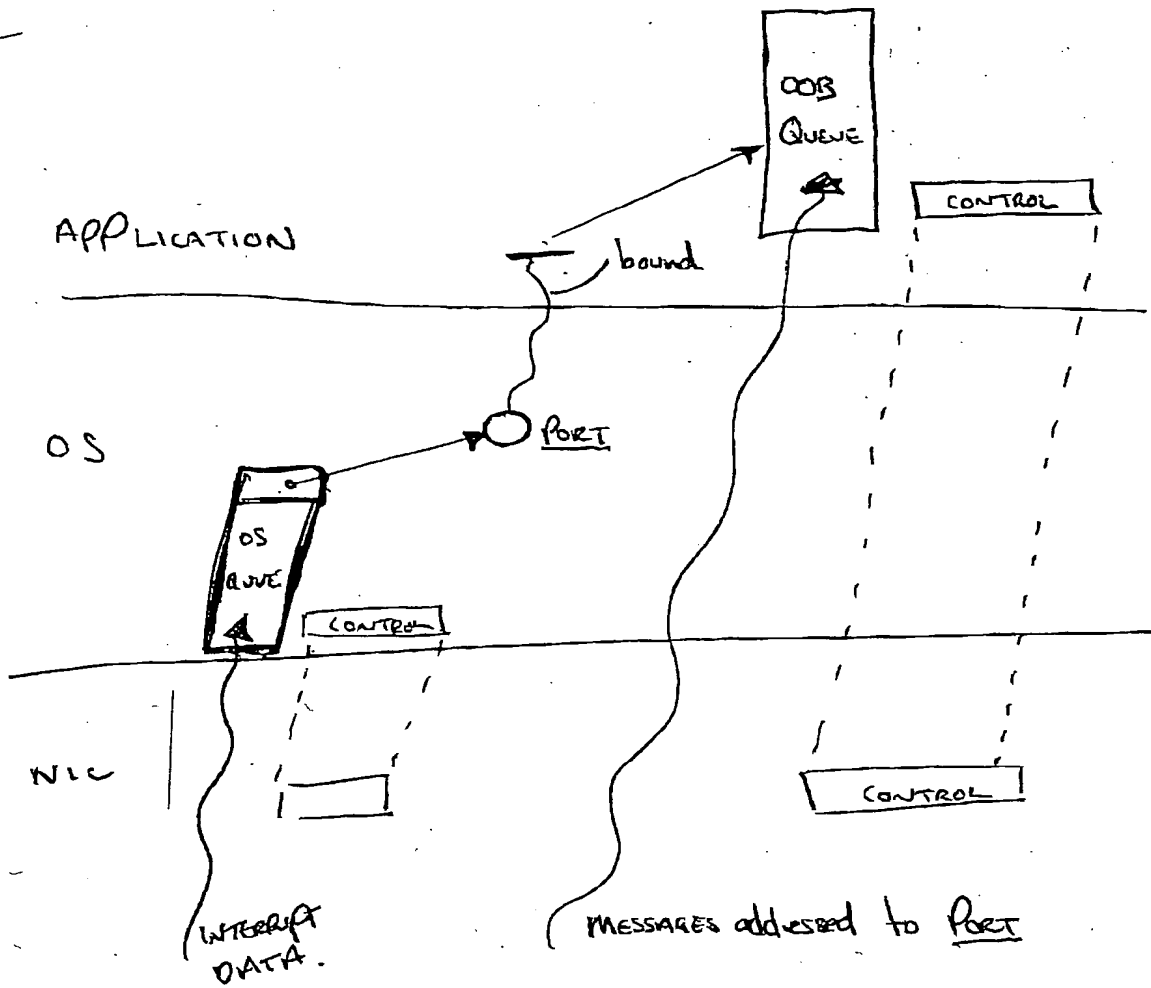 OOB
QUEUE
CONTROL
APPLICATION
bound
OS
PORT
OS
QUUE
CONTROL
NIC
CONTROL
INTERRUPT
DATA.
MESSAGES addressed to PORT